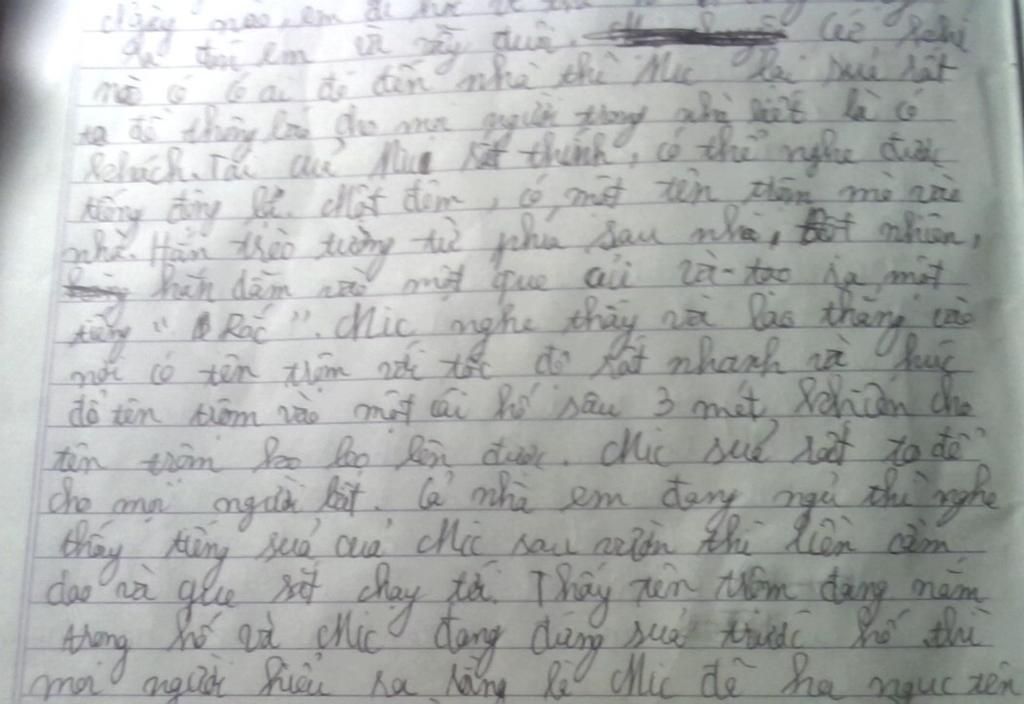 Ngày nào, em đi học về
ra đón em và vẫy đuôi. Cứ khi
nào có ai đó đến nhà thì Mic lại suả rất
to để thông báo cho mọi người trong nhà biết là có
khách. Tai của Mic rất thính, có thể nghe được
tiếng động lạ. Một đêm, có một tên trộm mò vào
nhà. Hắn trèo tường từ phía sau nhà, bất nhiên,
hắn dẫm vào một que củi và tạo ra một
tiếng " Rắc ". Mic nghe thấy và lao thẳng vào
nơi có tên trộm với tốc độ rất nhanh và húc
đổ tên trộm vào một cái hố sâu 3 mét khiến cho
tên trộm leo lên được. Mic suả rất to để
cho mọi người biết. Cả nhà em đang ngủ thì nghe
thấy tiếng suả của Mic sau vườn thì liền cầm
dao và que sắt chạy tới. Thấy tên trộm đang nằm
trong hố và Mic đang đứng suả trước hố thì
mọi người hiểu ra rằng là Mic đã hạ ngục tên